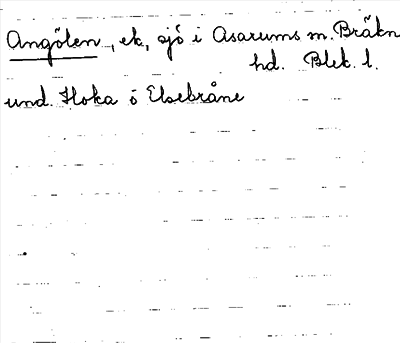 Angölen, ek, sjö i Asarums sn. Bräkn
hd. Blek. l.
und. Hoka ö Elsebråne